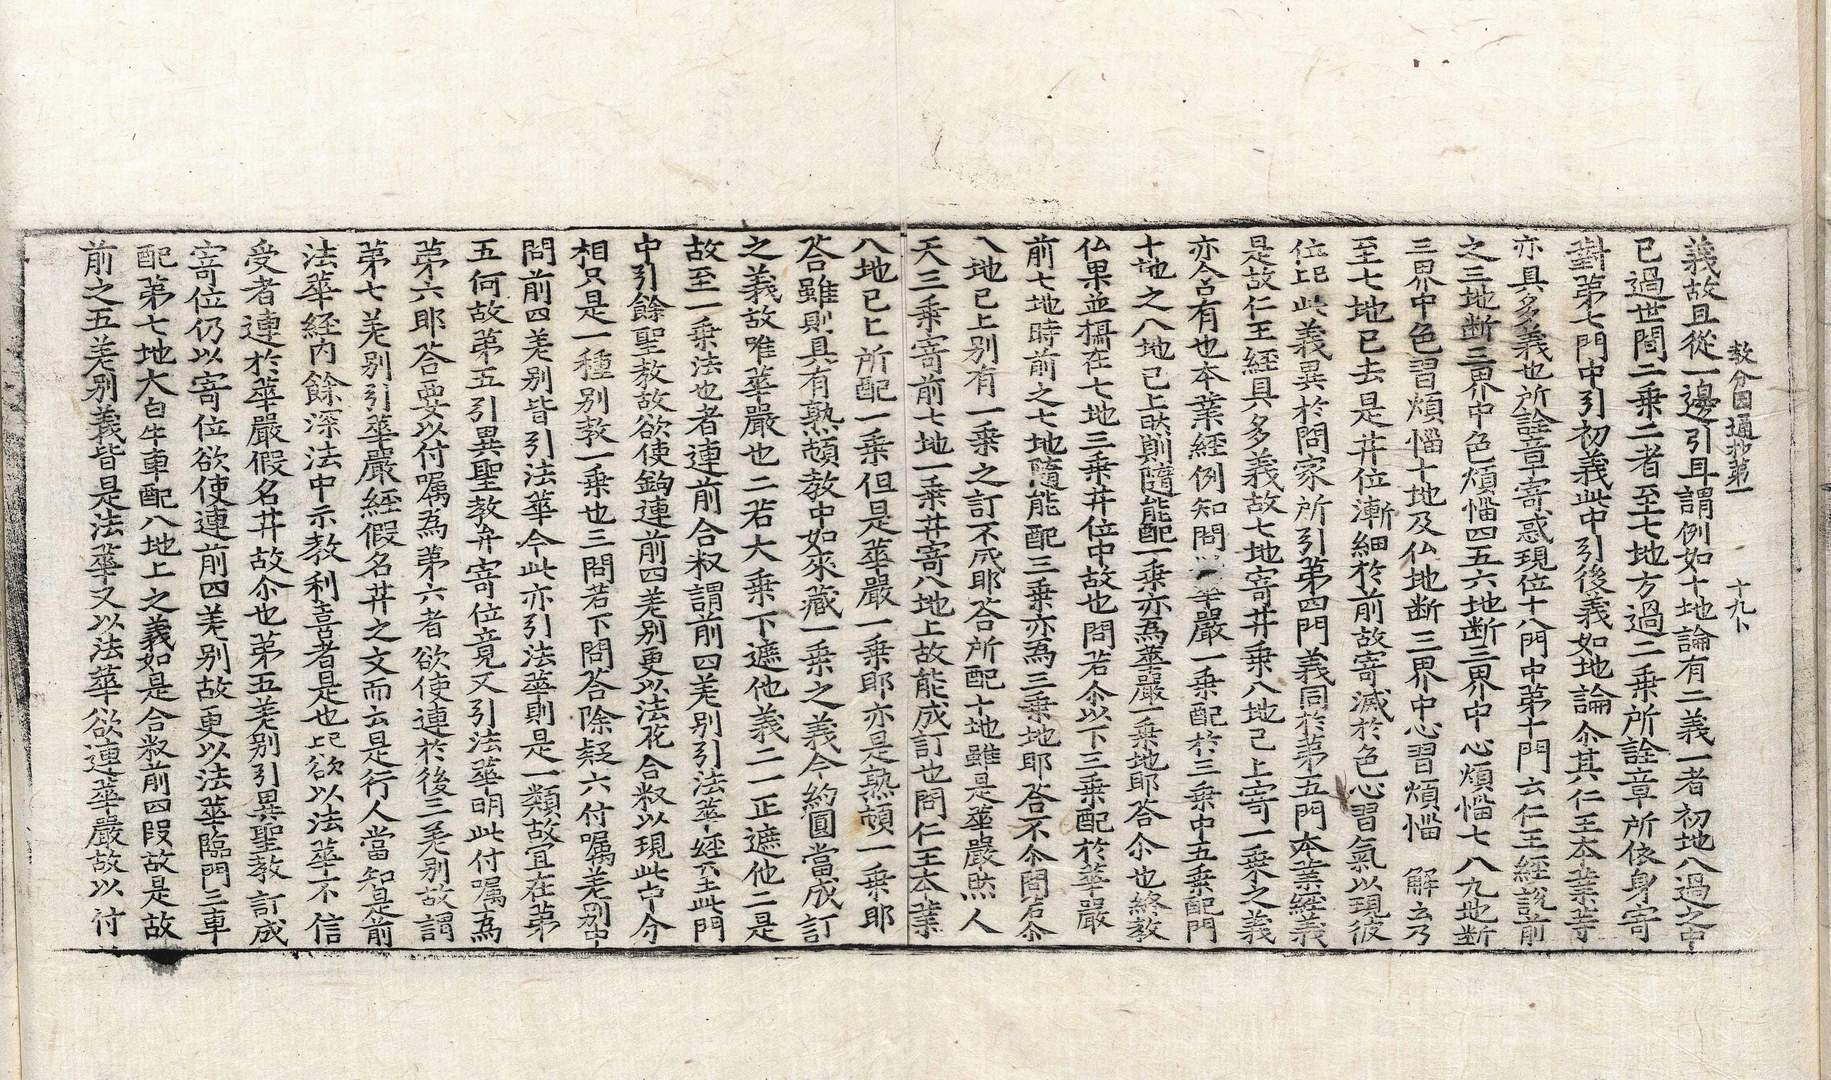 教分圓通抄第一　十九卜
義故且從一邊引耳謂例如十地論有二義一者初地八過之中
已過世間二乘二者至七地方過二乘所詮章所依身寄
對第七門中引初義此中引後義如地論尒其仁王本業等
亦具多義也所詮章寄惑現位十八門中第十門云仁王經說前
之三地断三界中色煩惱四五六地断三界中心煩惱七八九地断
三界中色習煩惱十地及仏地断三界中心習煩惱　解云乃
至七地已去是井位漸細於前故寄滅於色心習氣以現彼
位比此義異於問家所引第四門義同於第五門本業經義
是故仁王經具多義故七地寄井乘八地已上寄一乘之義
亦含有也本業經例知問華嚴一乘配於三乘中五乘配門
十地之八地已上此則隨能配一乘亦為華嚴一乘地耶荅尒也終教
仏果並攝在七地三乘井位中故也問若尒以下三乘配於華嚴
前七地時前之七地隨能配三乘亦為三乘地耶荅不尒問若尒
八地已上別有一乘之訂不成耶荅所配十地雖是華嚴然人
天三乘寄前七地一乘井寄八地上故能成訂也問仁王本業
八地已上所配一乘但是華嚴一乘耶亦是熟頓一乘耶
荅雖則具有熟頓教中如來藏一乘之義今約圓當成訂
之義故唯華嚴也二若大乘下遮他義二一正遮他二是
故至一乘法也者連前合敍謂前四差別引法華經六此門
中引餘聖教故欲使鈎連前四差別更以法花合敍以現此古今
相只是一種別教一乘也三問若下問荅除疑六付嘱差別中
問前四差別皆引法華今此亦引法華則是一類故宜在第
五何故第五引異聖教弁寄位竟又引法華明此付嘱為
第六耶荅要以付嘱為第六者欲使連於後三差別故謂
第七差別引華嚴經假名井之文而云是行人當知是前
法華経內餘深法中示教利喜者是也此欲以法華不信
受者連於華嚴假名井故尒也第五差別引異聖教訂成
寄位仍以寄位欲使連前四差別故更以法華臨門三車
配第七地大白牛車配八地上之義如是合敍前四段故是故
前之五差別義皆是法華又以法華欲連華嚴故以付